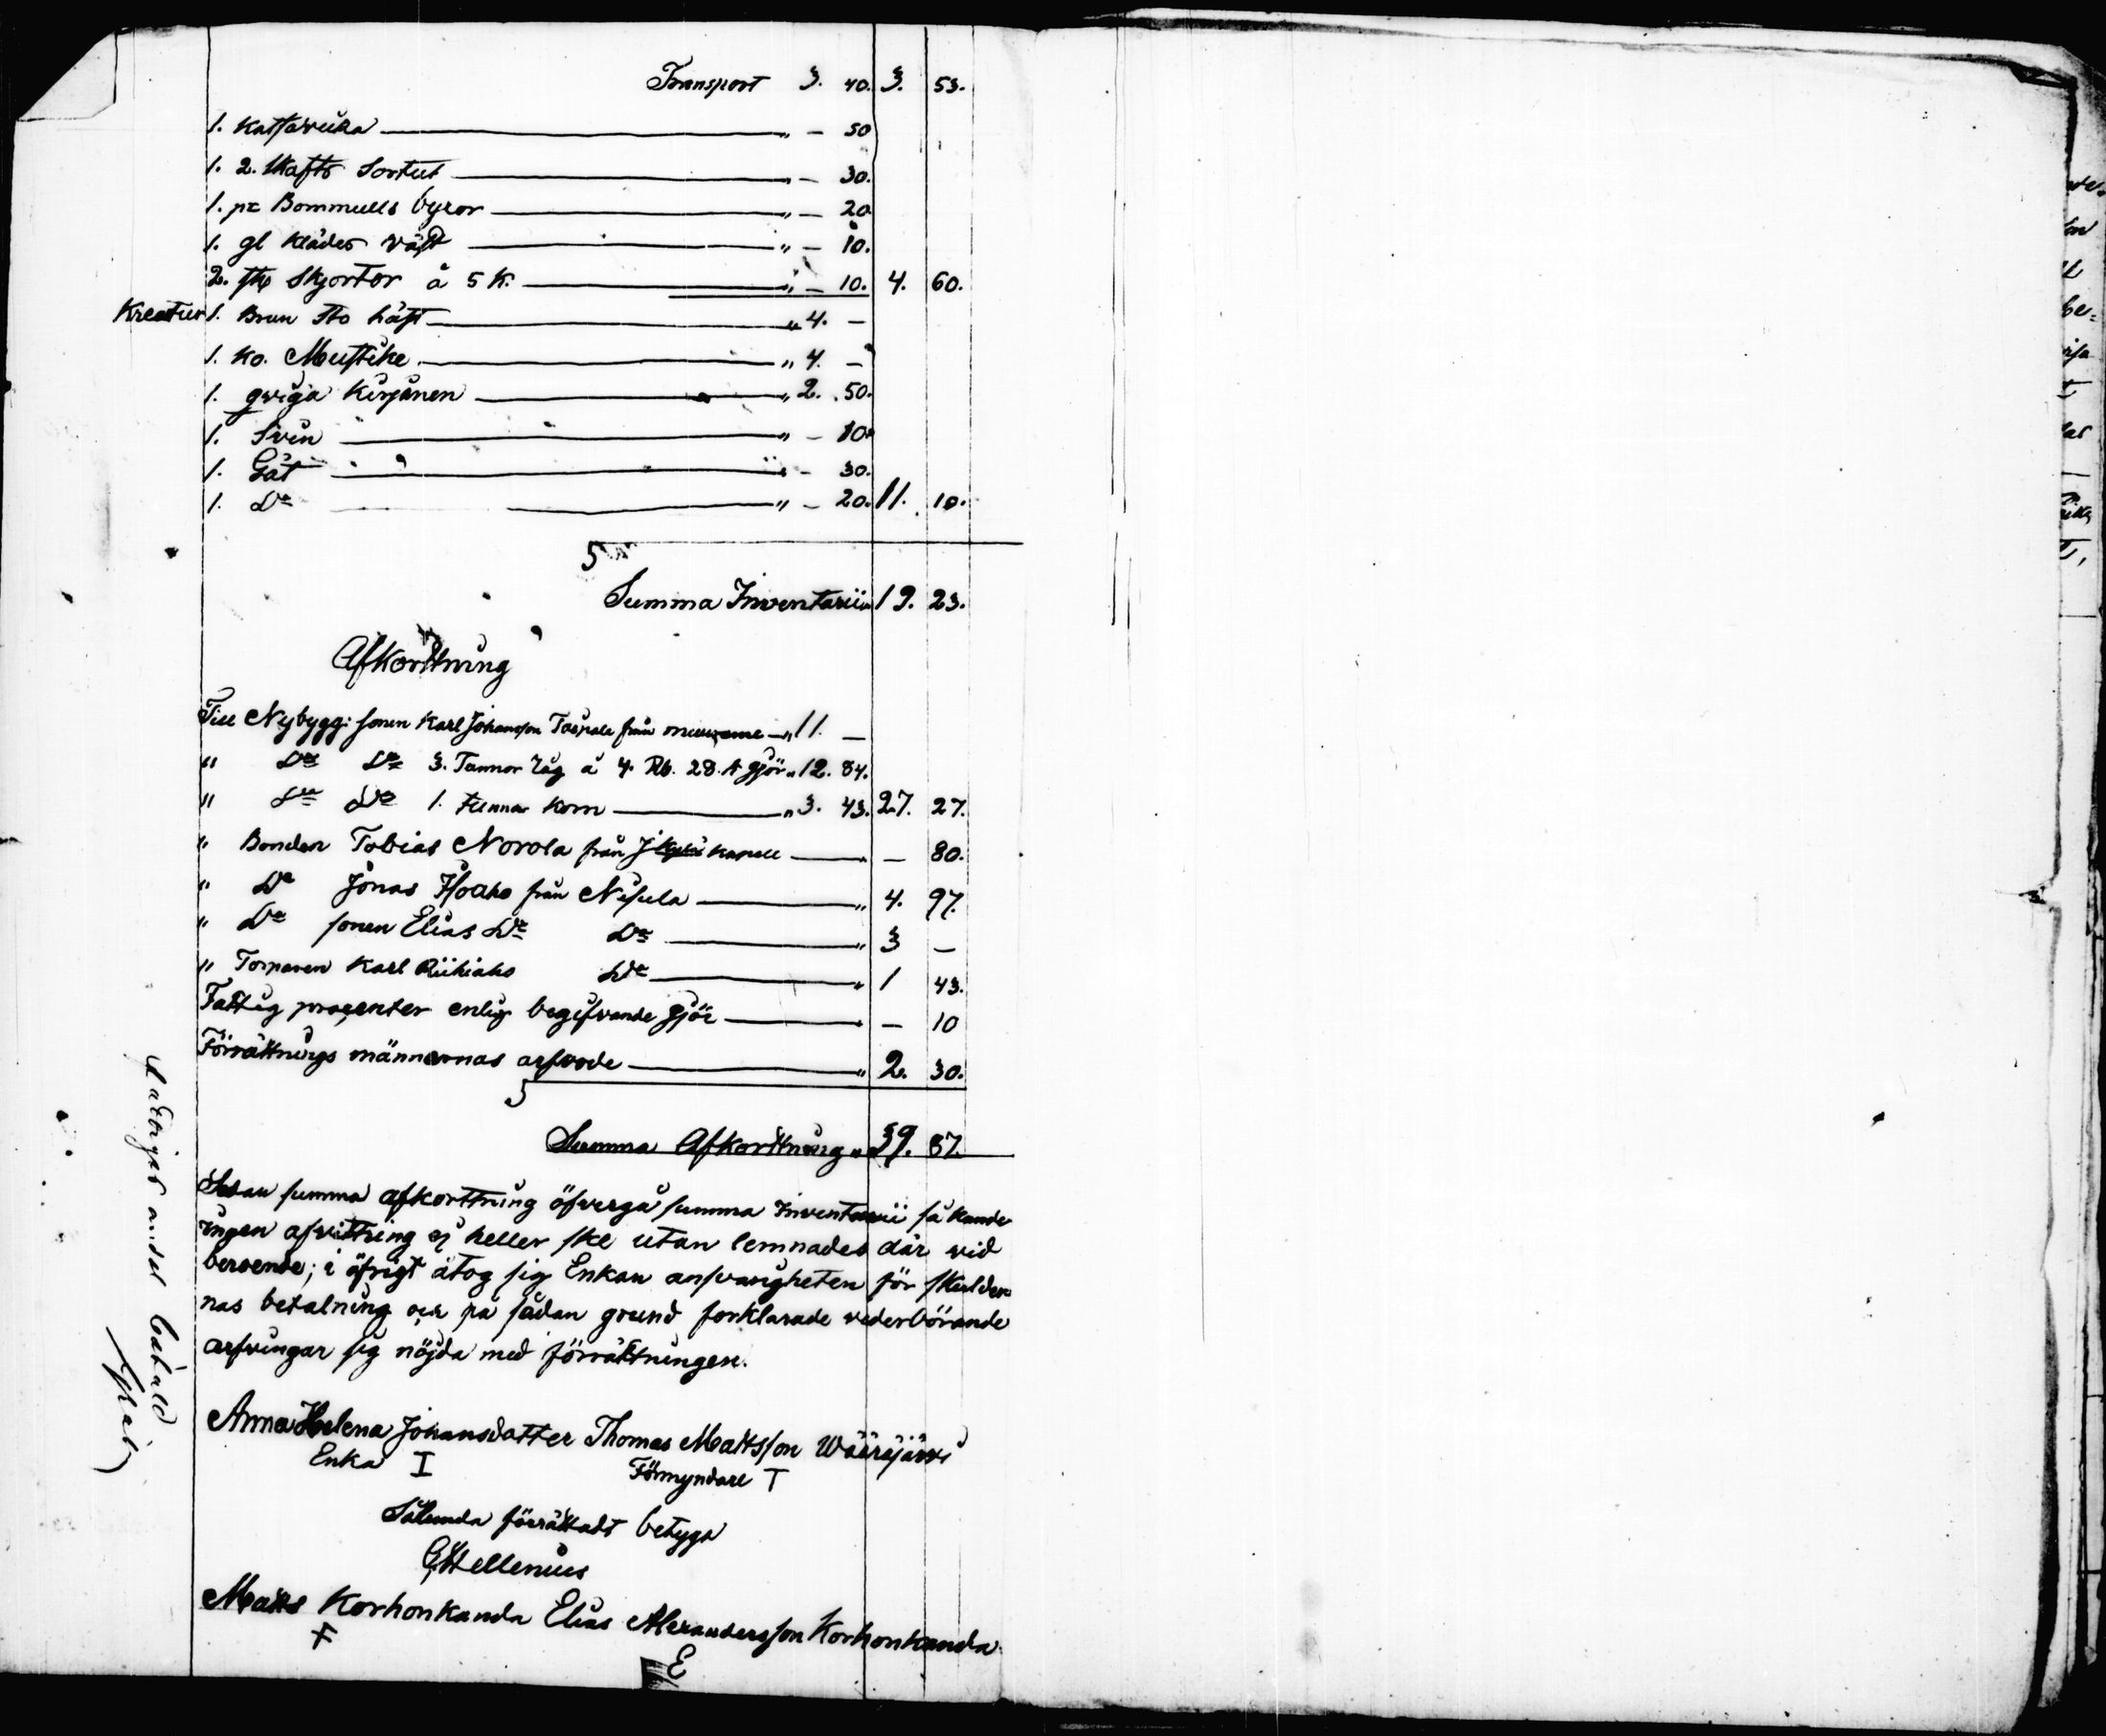 Transport 3. 40. 3. 53.
1. Kattavuka " — 50
1. 2. Skafts Sortut " — 30.
1. pr Bommulls byxor " — 20
1. gl Klädes väst " — 10.
2. st. Skjortor å 5 K. " — 10. 4. 60.
Kreatur 1. Brun Sto häst " 4. —
1. Ko. Mustike " 4. —
1. qviga Kirjanen " 2. 50.
1. Svin " — 10.
1. Gåt " — 30.
1. Do " — 20. 11. 10.
Summa Inventarii 19. 23.
Afkorttning
Till Nybygg: sonen Karl Johansson från " 11. —
" Do Do 3. Tunnor råg å 4. Rb. 28. k gjör " 12. 84.
" Do Do 1. tunna korn " 3. 43. 27. 27.
" Bonden Tobias Norola från kapell " — 80.
" Do Jonas Isoaho från Nisula " 4. 97.
" Do sonen Elias Do Do " 3 —
" Torparen Karl Riihiaho Do " 1 43.
Fattig procenter enlig begifvande gjör " — 10
Förrättnings männernas arfvode " 2. 30.
Summa Afkorttning " 39. 87.
Sedan summa afkorttning öfvergå summa Inventarii så kunde
ingen afvittring ej heller ske utan lemnades där vid
beroende; i öfrigt åtog sig Enkan ansvarigheten för skulder=
nas betalning och på sådan grund forklarade vederbörande
arfvingar sig nöjda med förrättningen.
Anna Helena Johansdotter Thomas Mattsson Wääräjärvi
Enka I Förmyndare T
Sålunda förrättadt betyga
GHellenius
Matts Korhonkanda Elias Alexandersson Korhonkanda
E
Fattigas andel betald